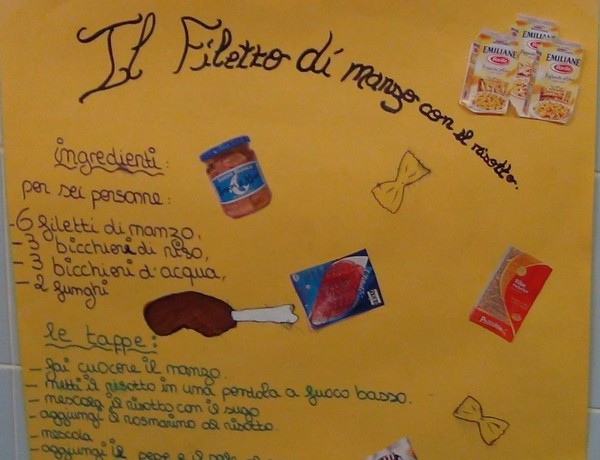 Il Filetto di manzo con il risotto.
EMILIANE
Barilla
EMILIANE
Barilla
EMILIANE
Barilla
ingredienti:
per sei persone:
-6 filetti di manzo,
-3 bicchieri di riso,
-3 bicchieri d'acqua,
-2 funghi
le tappe:
- fai cuocere il manzo.
- metti il risotto in una pentola a fuoco basso.
- mescola il risotto con il sugo
- aggiungi il rosmarino al risotto.
- mescola
- aggiungi il pepe e il sale